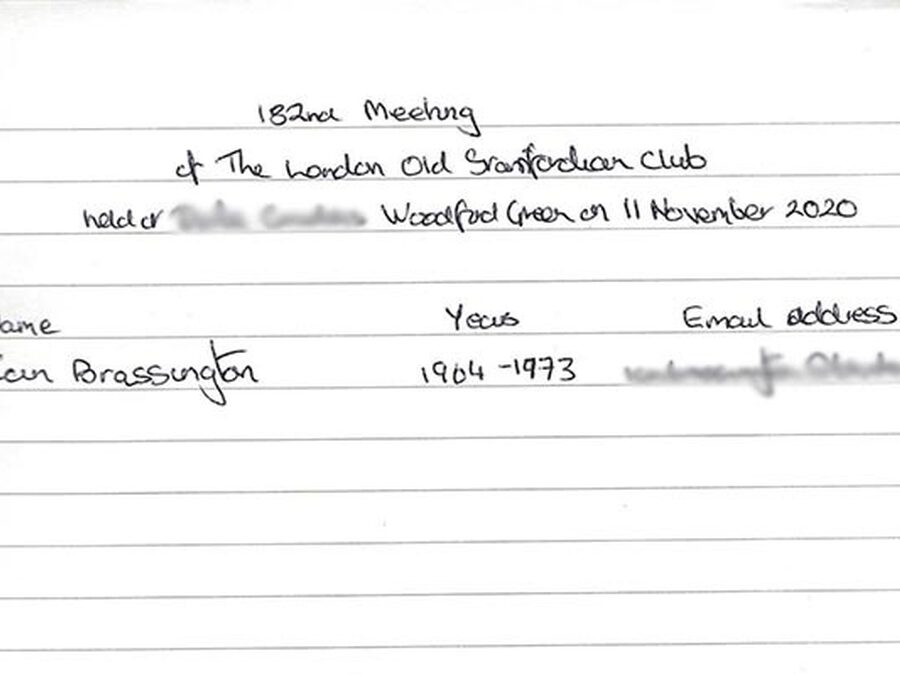 182nd Meeting
of The London Old Stamfordian Club
held at Woodford Green on 11 November 2020
ame Years Email address
Ian Brassington 1964-1973